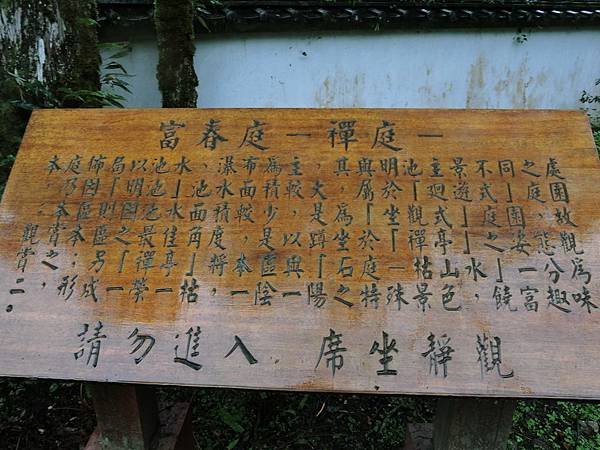 富春庭—禪庭—
本庭佈局以水池、瀑布為主,其與明池主景不同之處
,乃因「明池」水面積較大,屬於「迴遊式」庭園,
本區則因池水面積較少,是為「坐觀式」庭園,故
本區之最佳角度,是以蹲坐於「禪亭」之姿態觀
賞之;另「禪亭」將本區與石庭「枯山水」一分為
二,形成一榮一枯,一陰一陽之特殊景色,饒富趣味
。
請勿進入 席坐靜觀